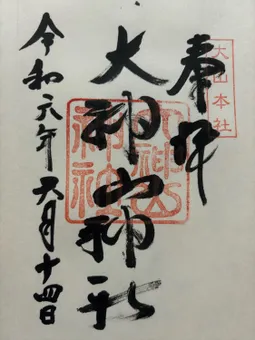 大山本社
奉拝
大神山神社
大神山
神社
令和元年六月十四日